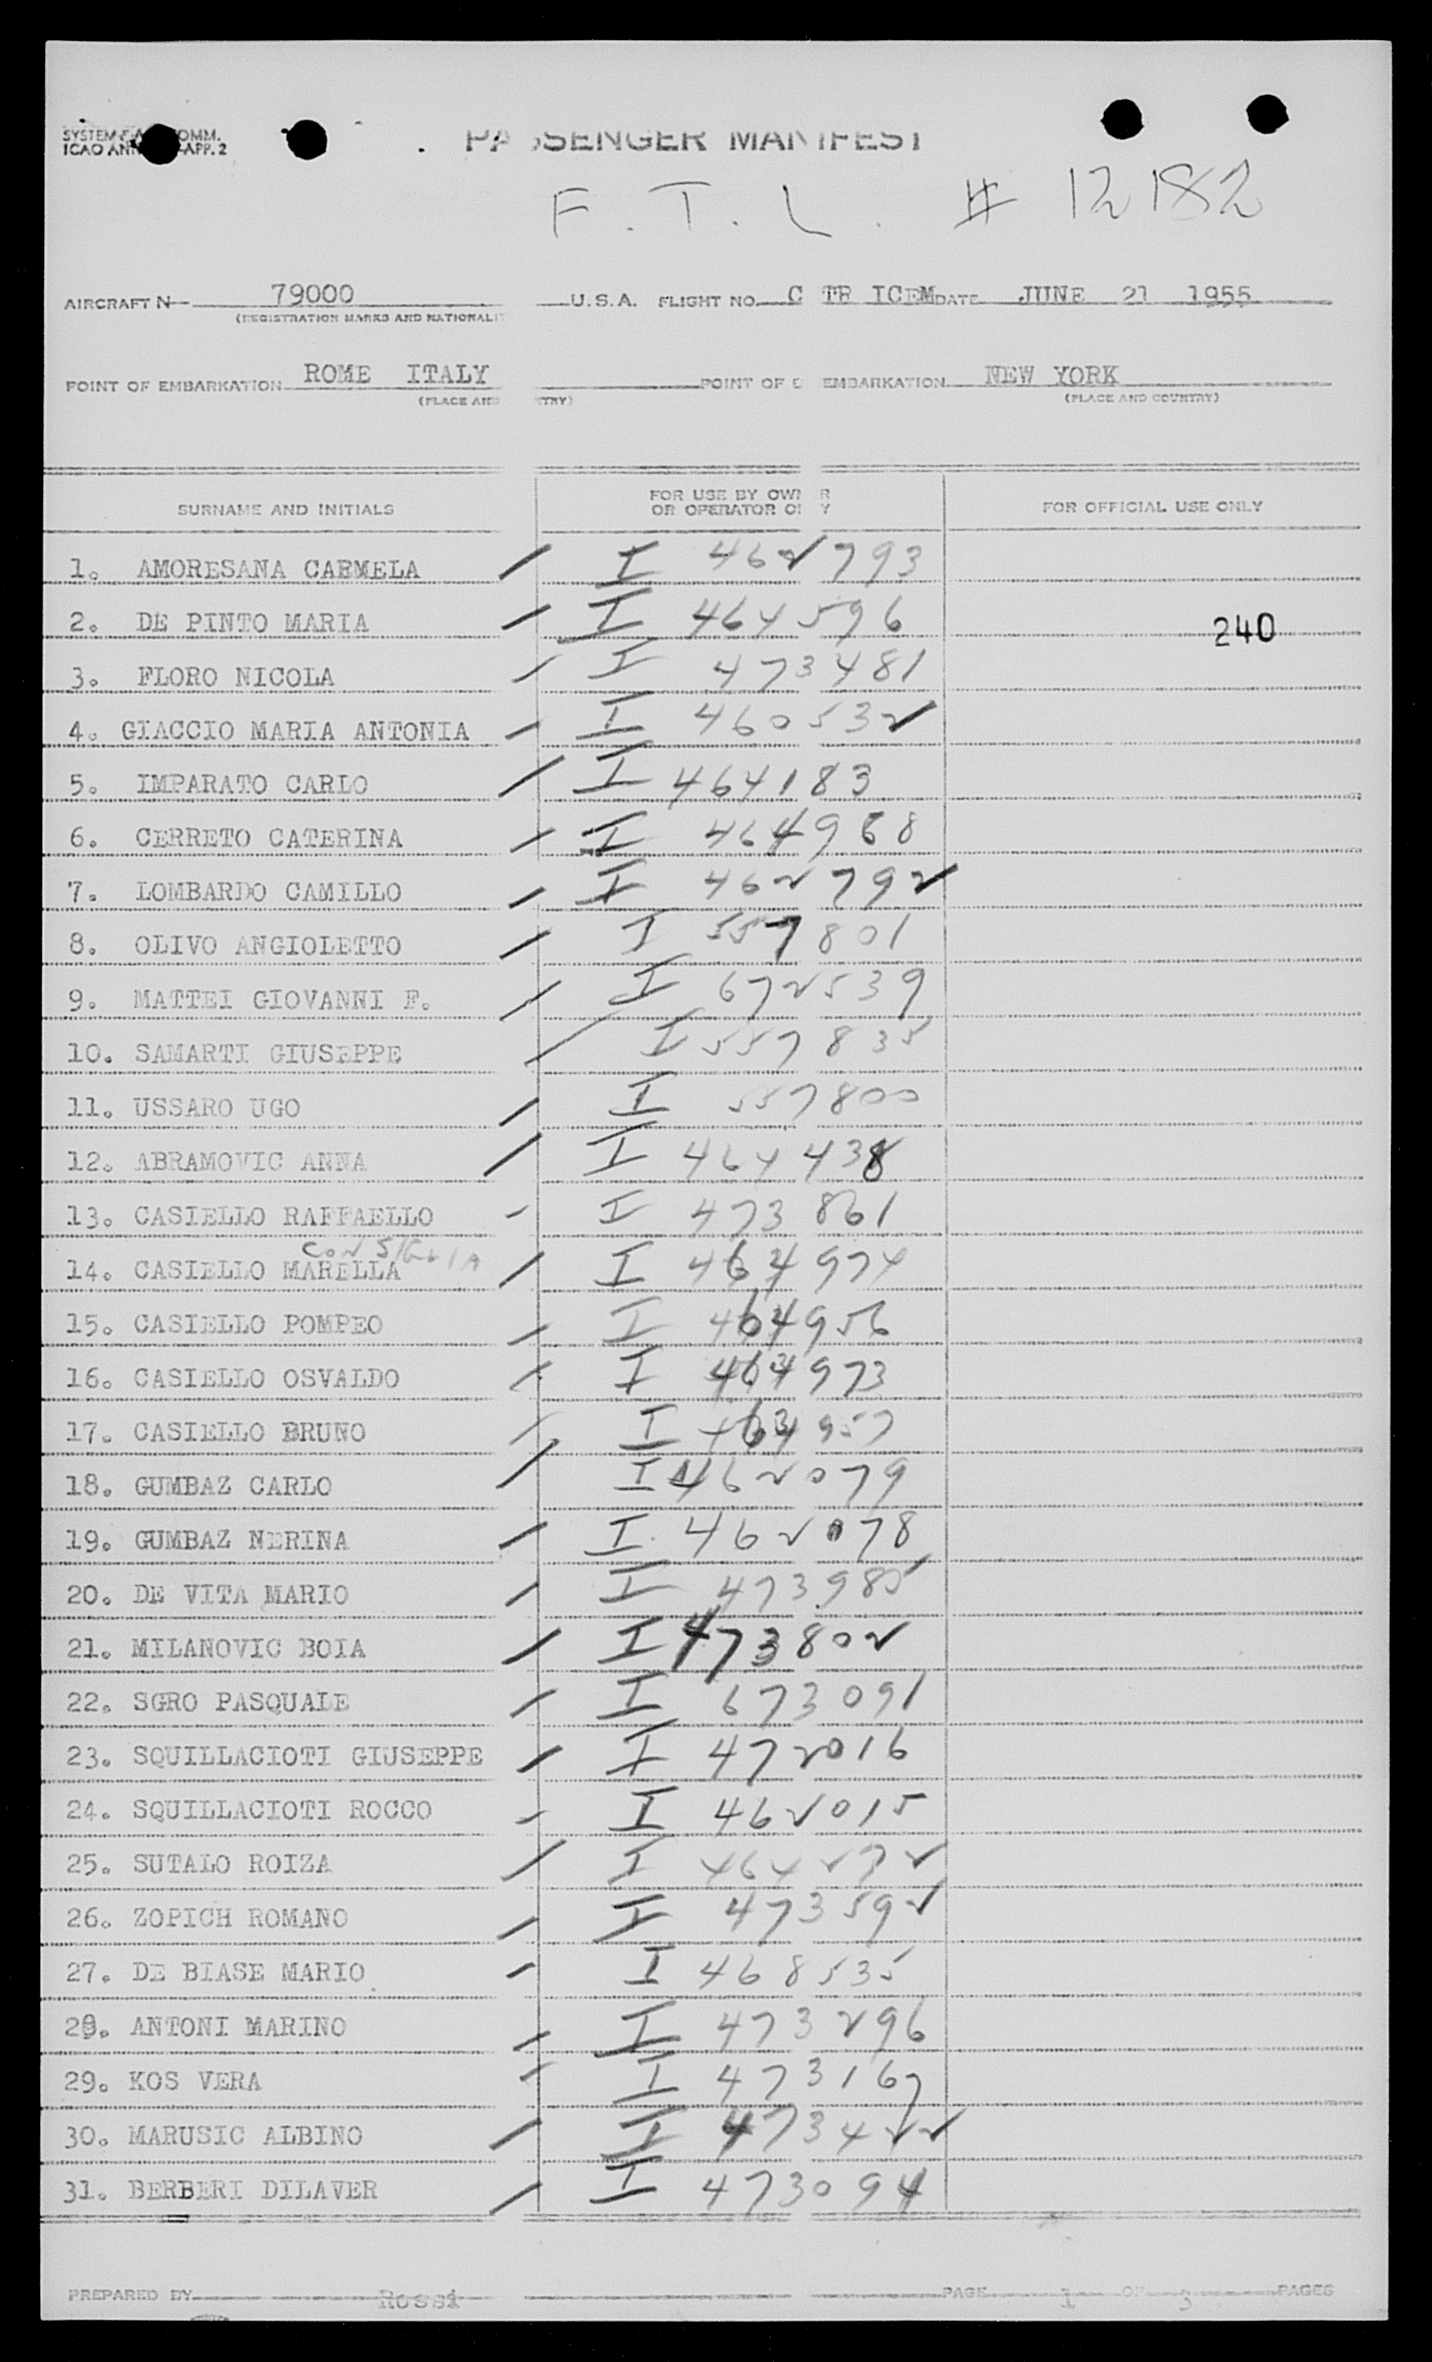 PASSENGER MANIFEST
F. T. L. # 12182
AIRCRAFT N 79000 U.S.A. FLIGHT NO. C TR ICEM DATE JUNE 21 1955
(REGISTRATION MARKS AND NATIONALI
POINT OF EMBARKATION ROME ITALY POINT OF EMBARKATION NEW YORK
(PLACE AND TRY) (PLACE AND COUNTRY)
SURNAME AND INITIALS FOR USE BY OWNER OR OPERATOR ONLY FOR OFFICIAL USE ONLY
1. AMORESANA CARMELA / I 462793
2. DE PINTO MARIA / I 464596 240
3. FLORO NICOLA / I 473481
4. GIACCIO MARIA ANTONIA / I 460532
5. IMPARATO CARLO / I 464183
6. CERRETO CATERINA / I 464968
7. LOMBARDO CAMILLO / I 462792
8. OLIVO ANGIOLETTO / I 557801
9. MATTEI GIOVANNI F. / I 672539
10. SAMARTI GIUSEPPE / I 557835
11. USSARO UGO / I 557800
12. ABRAMOVIC ANNA / I 464438
13. CASIELLO RAFFAELLO / I 473861
CONSIGLIA
14. CASIELLO MARELLA / I 464974
15. CASIELLO POMPEO / I 464956
16. CASIELLO OSVALDO / I 464973
17. CASIELLO BRUNO / I 464957
18. GUMBAZ CARLO / I 462079
19. GUMBAZ NERINA / I 462078
20. DE VITA MARIO / I 473985
21. MILANOVIC BOIA / I 473802
22. SGRO PASQUALE / I 673091
23. SQUILLACIOTI GIUSEPPE / I 472016
24. SQUILLACIOTI ROCCO / I 462015
25. SUTALO ROIZA / I 464272
26. ZOPICH ROMANO / I 473592
27. DE BIASE MARIO / I 468535
28. ANTONI MARINO / I 473296
29. KOS VERA / I 473167
30. MARUSIC ALBINO / I 473422
31. BERBERI DILAVER / I 473094
PREPARED BY Rossi PAGE 1 OF 3 PAGES